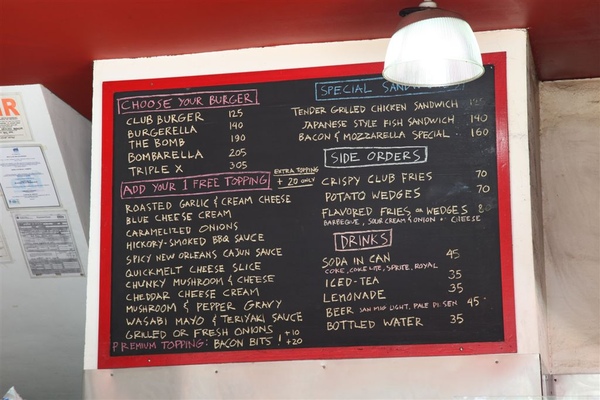 CHOOSE YOUR BURGER
CLUB BURGER 125
BURGERELLA 140
THE BOMB 190
BOMBARELLA 205
TRIPLE X 305
ADD YOUR 1 FREE TOPPING
EXTRA TOPPING
+ 20 ONLY
ROASTED GARLIC & CREAM CHEESE
BLUE CHEESE CREAM
CARAMELIZED ONIONS
HICKORY-SMOKED BBQ SAUCE
SPICY NEW ORLEANS CAJUN SAUCE
QUICKMELT CHEESE SLICE
CHUNKY MUSHROOM & CHEESE
CHEDDAR CHEESE CREAM
MUSHROOM & PEPPER GRAVY
WASABI MAYO & TERIYAKI SAUCE
GRILLED OR FRESH ONIONS +10
PREMIUM TOPPING: BACON BITS! +20
SPECIAL
TENDER GRILLED CHICKEN SANDWICH
JAPANESE STYLE FISH SANDWICH 140
BACON & MOZZARELLA SPECIAL 160
SIDE ORDERS
CRISPY CLUB FRIES 70
POTATO WEDGES 70
FLAVORED FRIES OR WEDGES
BARBEQUE, SOUR CREAM & ONION CHEESE
DRINKS
SODA IN CAN 45
COKE, COKE LITE, SPRITE, ROYAL
ICED-TEA 35
LEMONADE 35
BEER SAN MIG LIGHT, PALE PILSEN 45
BOTTLED WATER 35